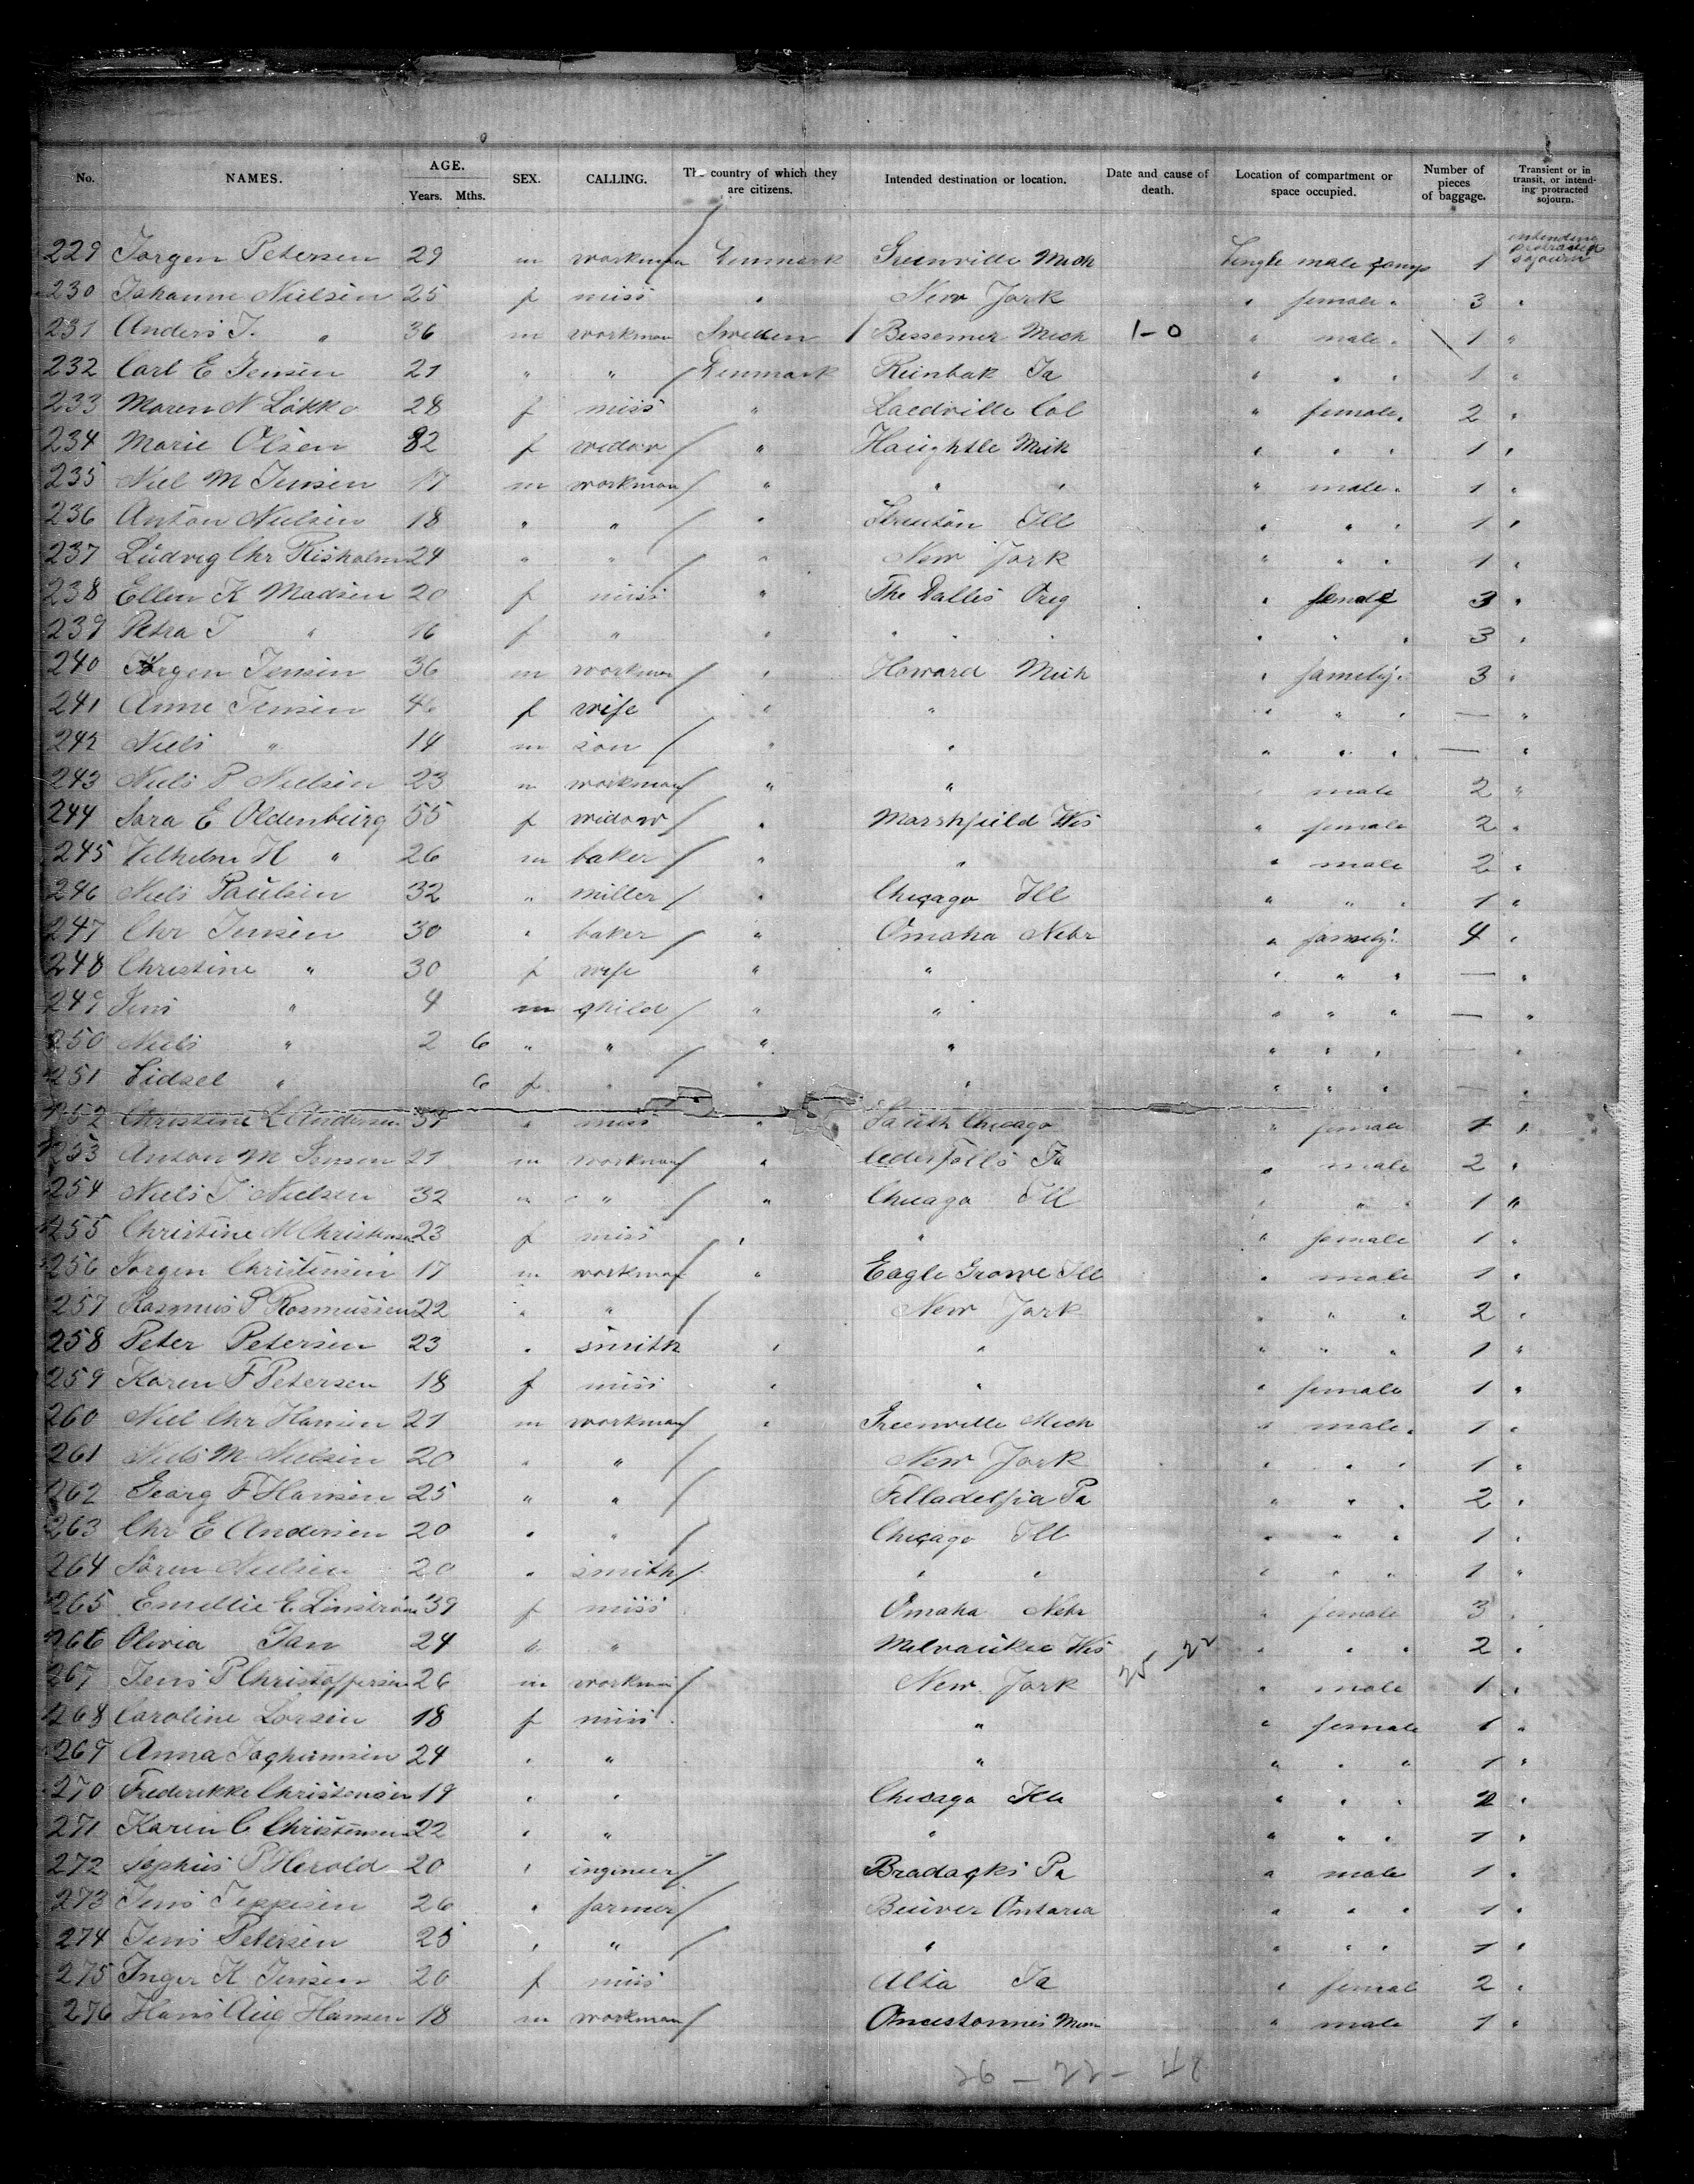 No. NAMES. AGE. Years. Mths. SEX. CALLING. The country of which they are citizens. Intended destination or location. Date and cause of death. Location of compartment or space occupied. Number of pieces of baggage. Transient or in transit, or intending protracted sojourn.
229 Jorgen Petersen 29 m workman Denmark Greenville Mich Single male 1 intending protracted sojourn
230 Johanne Nielsen 25 f miss " New York " female " 3 "
231 Anders J. " 36 m workman Sweden Bessemer Mich 1-0 " male " 1 "
232 Carl E Jensen 21 " " Denmark Reinbak Ia " " " 1 "
233 Maren N Lökke 28 f miss " Laedville Col " female " 2 "
234 Marie Olsen 82 f widow " " " " 1 "
235 Niel M Jensen 17 m workman " " " " male " 1 "
236 Anton Nielsen 18 " " " Ill " " " 1 "
237 Ludvig Chr Risholm 24 " " " New York " " " 1 "
238 Ellen K Madsen 20 f miss " The Dalles Oreg " female 3 "
239 Petra J " 16 f " " " " " " " " 3 "
240 Jorgen Jensen 36 m workman " Howard Mich " famely " 3 "
241 Anne Jensen 46 f wife " " " " " — "
242 Niels " 14 m son " " " " " — "
243 Niels P Nielsen 23 m workman " " " male 2 "
244 Sara E Oldenburg 55 f widow " Marshfield Wis " female 2 "
245 Vilhelm H " 26 m baker " " " male 2 "
246 Niels Paulsen 32 " miller " Chicago Ill " " " 1 "
247 Chr Jensen 30 " baker " Omaha Nebr " famely " 4 "
248 Christine " 30 f wife " " " " " — "
249 Jens " 4 m child " " " " " — "
250 Niels " 2 6 " " " " " " " — "
251 Sidsel " 6 f " " " " " " — "
252 Christine L Andersen 31 " miss " South Chicago " female 1 "
253 Anton M Jensen 21 m workman " Ceder Falls Ia " male 2 "
254 Niels J Nielsen 32 " " " Chicago Ill " " " 1 "
255 Christine M Christensen 23 f miss " " " female 1 "
256 Jorgen Christensen 17 m workman " Eagle Growe Ill " male 1 "
257 Rasmus P Rasmussen 22 " " New York " " " 2 "
258 Peter Petersen 23 " smith " " " " " 1 "
259 Karen F Petersen 18 f miss " " " female 1 "
260 Niel Chr Hansen 21 m workman " Greenville Mich " male " 1 "
261 Niels M Nielsen 20 " " New York " " " 1 "
262 Georg F Hansen 25 " " Filladelfia Pa " " " 2 "
263 Chr E Andersen 20 " " Chicago Ill " " " 1 "
264 Sören Nielsen 20 " smith " " " " " 1 "
265 Emellie E Linström 39 f miss Omaha Nebr " female 3 "
266 Olivia Jan 24 " " Melvaukee Wis " " " 2 "
267 Jens P Christoffersen 26 m workman New York " male 1 "
268 Caroline Larsen 18 f miss " " female 1 "
269 Anna 24 " " " " " " 1 "
270 Frederikke Christensen 19 " " Chicago Ill " " " 2 "
271 Karen C Christensen 22 " " " " " " 1 "
272 Sophus P Herold 20 " ingineer Pa " male 1 "
273 Jens Jeppesen 26 " farmer Ontario " " " 1 "
274 Jens Petersen 25 " " " " " " 1 "
275 Inger K Jensen 20 f miss Alta Ia " female 2 "
276 Hans Aug Hansen 18 m workman " male 1 "
26 – 22 – 48